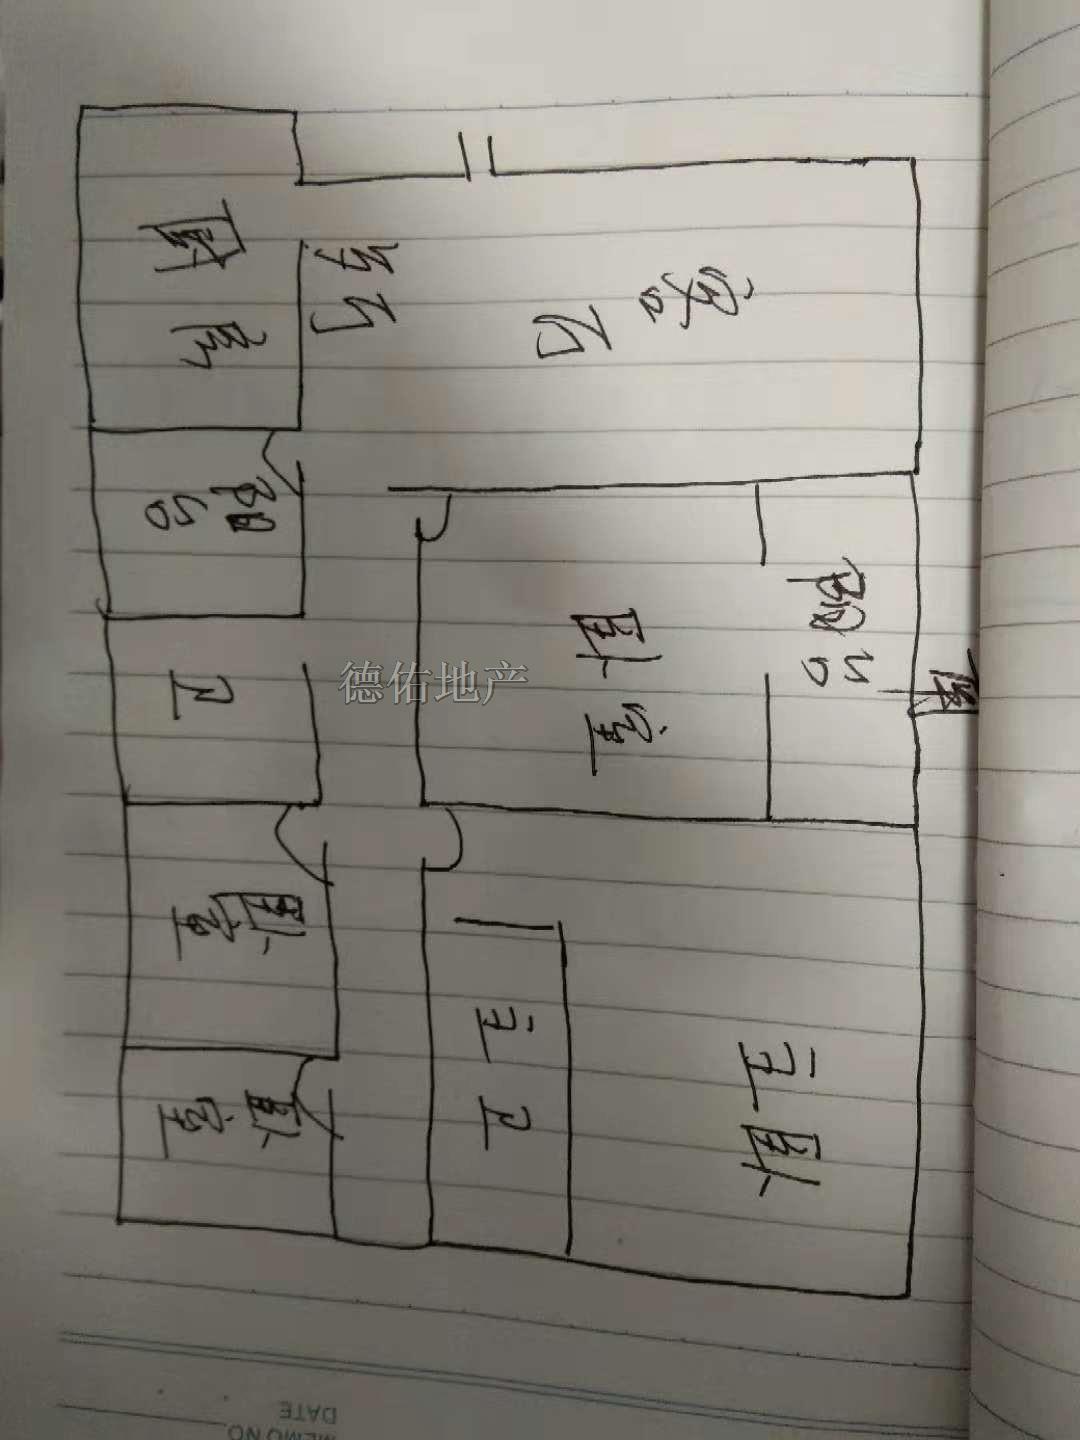 房
厅
客厅
阳台
阳台
卧室
卫
德佑地产
卧室
主卫
主卧
卧室
DATE
MEMO NO